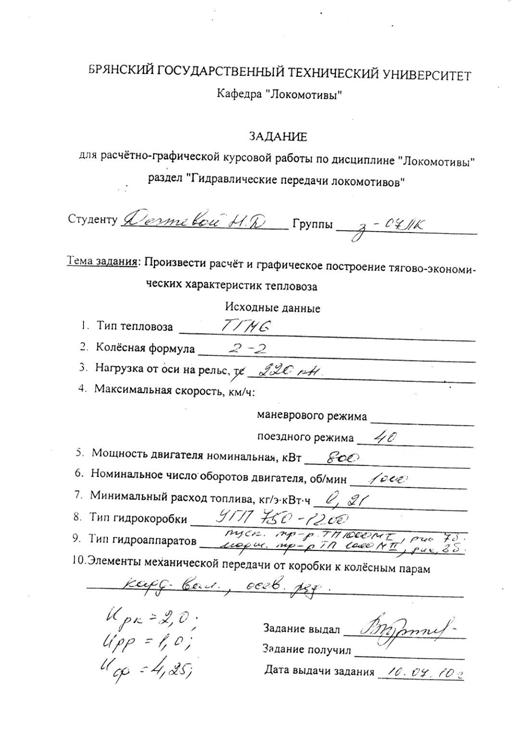 БРЯНСКИЙ ГОСУДАРСТВЕННЫЙ ТЕХНИЧЕСКИЙ УНИВЕРСИТЕТ
Кафедра "Локомотивы"
ЗАДАНИЕ
для расчётно-графической курсовой работы по дисциплине "Локомотивы"
раздел "Гидравлические передачи локомотивов"
Студенту Н.Д Группы з-07ЛК
Тема задания: Произвести расчёт и графическое построение тягово-экономи-
ческих характеристик тепловоза
Исходные данные
1. Тип тепловоза ТГМ6
2. Колёсная формула 2-2
3. Нагрузка от оси на рельс, тс 220 кН
4. Максимальная скорость, км/ч:
маневрового режима
поездного режима 40
5. Мощность двигателя номинальная, кВт 800
6. Номинальное число оборотов двигателя, об/мин 1000
7. Минимальный расход топлива, кг/э·кВт·ч 0,21
8. Тип гидрокоробки УГП 750-1200
9. Тип гидроаппаратов пуск. тр-р ТП1000МI, рис
марш. тр-р ТП 1000МII, рис
10.Элементы механической передачи от коробки к колёсным парам
кард. вал., осев. ред.
Uрк = 2,0;
Uрр = 1,0;
Uор = 4,25;
Задание выдал
Задание получил
Дата выдачи задания 10.04.10г